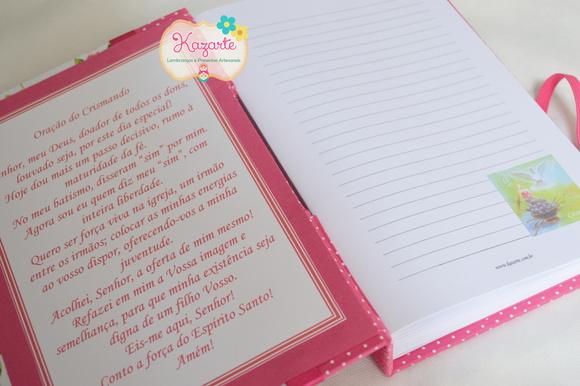 Kazarte
Lembranças e Presentes Artesanais
Oração do Crismando
Senhor, meu Deus, doador de todos os dons,
louvado seja, por este dia especial!
Hoje dou mais um passo decisivo, rumo à
maturidade da fé.
No meu batismo, disseram "sim" por mim.
Agora sou eu quem diz meu "sim", com
inteira liberdade.
Quero ser força viva na igreja, um irmão
entre os irmãos; colocar as minhas energias
ao vosso dispor, oferecendo-vos a minha
juventude.
Acolhei, Senhor, a oferta de mim mesmo!
Refazei em mim a Vossa imagem e
semelhança, para que minha existência seja
digna de um filho Vosso.
Eis-me aqui, Senhor!
Conto a força do Espírito Santo!
Amém!